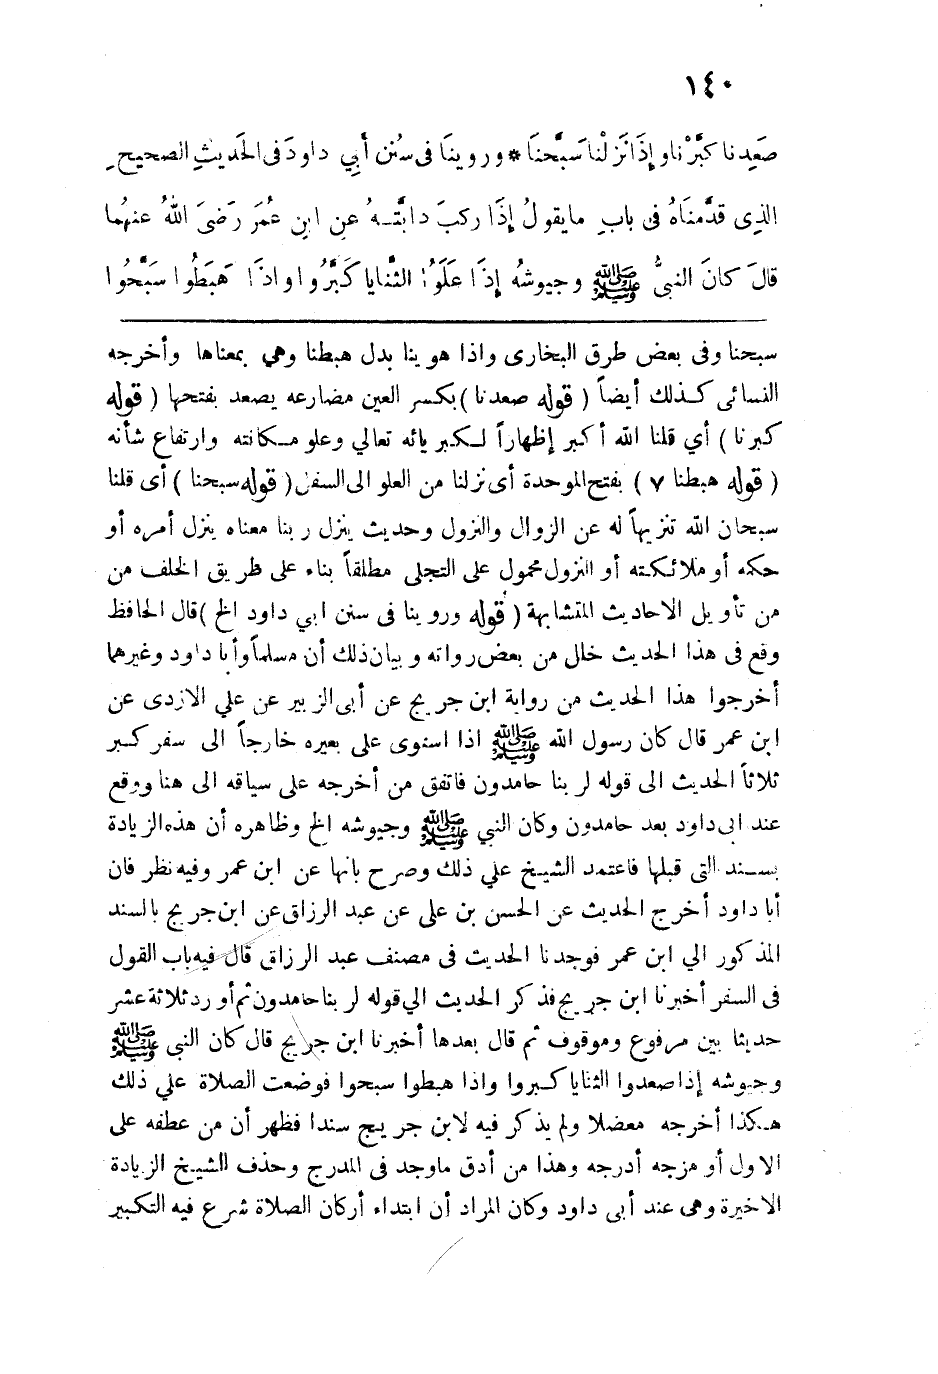 ١٤٠
صَعِدنا كبَّرْنا وإِذَا نَزلْنا سَبَّحْنَا * وروينا فى سنُن أَبي داودَ فى الحَديثِ الصحيحِ
الذِى قدَّمنَاهُ فى بابِ مايقولُ إِذَا ركبَ دابَّتـهُ عنِ ابنِ عُمَر رَضىَ اللهُ عنهُما
قالَ كانَ النبىُّ ﷺ وجيوشُه إِذَا عَلَوُا الثَّنايا كَبَّرُوا واذَا هَبَطُوا سَبَّحُوا
سبحنا وفى بعض طرق البخارى واذا هوينا بدل هبطنا وهي بمعناها وأخرجه
النسائى كـذلك أيضاً ( قوله صعدنا ) بكسر العين مضارعه يصعد بفتحها ( قوله
كبرنا ) أي قلنا الله أكبر إظهاراً لـكبريائه تعالي وعلو مـكانته وارتفاع شأنه
( قوله هبطنا ٧ ) بفتح الموحدة أى نزلنا من العلو الى السفل ( قوله سبحنا ) أى قلنا
سبحان الله تنزيهاً له عن الزوال والنزول وحديث ينزل ربنا معناه ينزل أمره أو
حكمه أو ملائكته أو النزول محمول على التجلى مطلقاً بناء على طريق الخلف من
من تأويل الاحاديث المتشابهة ( قوله وروينا فى سنن ابي داود الخ ) قال الحافظ
وقع فى هذا الحديث خلل من بعض رواته وبيان ذلك أن مسلماً وأبا داود وغيرهما
أخرجوا هذا الحديث من رواية ابن جريج عن أبى الزبير عن علي الازدى عن
ابن عمر قال كان رسول الله ﷺ اذا استوى على بعيره خارجاً الى سفر كبر
ثلاثاً الحديث الى قوله لربنا حامدون فاتفق من أخرجه على سياقه الى هنا ووقع
عند ابى داود بعد حامدون وكان النبي ﷺ وجيوشه الخ وظاهره أن هذه الزيادة
بسـند التى قبلها فاعتمد الشيخ علي ذلك وصرح بانها عن ابن عمر وفيه نظر فان
أبا داود أخرج الحديث عن الحسن بن على عن عبد الرزاق عن ابن جريج بالسند
المذكور الي ابن عمر فوجدنا الحديث فى مصنف عبد الرزاق قال فيه باب القول
فى السفر أخبرنا ابن جريج فذكر الحديث الي قوله لربنا حامدون ثم أورد ثلاثة عشر
حديثا بين مرفوع وموقوف ثم قال بعدها أخبرنا ابن جريج قال كان النبى ﷺ
وجيوشه إذا صعدوا الثنايا كبروا واذا هبطوا سبحوا فوضعت الصلاة علي ذلك
هـكذا أخرجه معضلا ولم يذكر فيه لابن جريج سندا فظهر أن من عطفه على
الاول أو مزجه أدرجه وهذا من أدق ماوجد فى المدرج وحذف الشيخ الزيادة
الاخيرة وهى عند أبى داود وكان المراد أن ابتداء أركان الصلاة شرع فيه التكبير